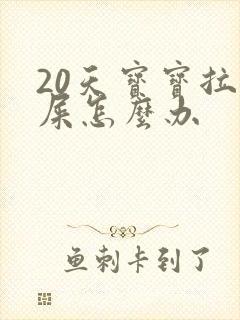 20天寶寶拉
屎怎麼办
鱼刺卡到了